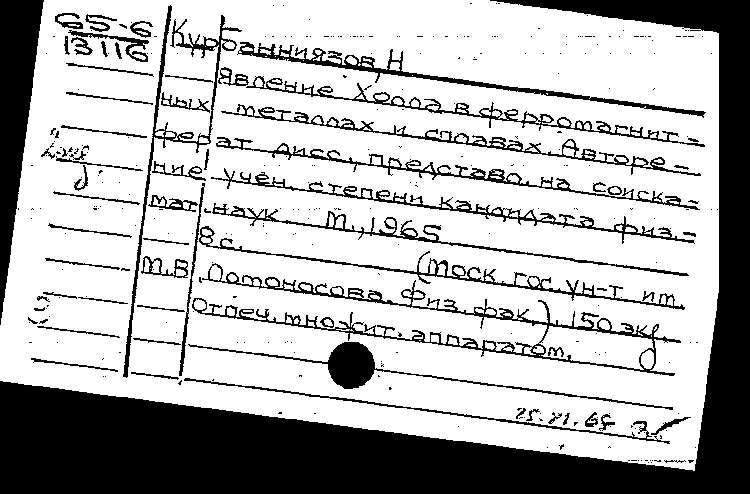 65-6
13116
Курбанниязов, Н
Явление Холла в ферромагнит-
ных металлах и сплавах. Авторе-
ферат дисс., представл. на соиска-
ние учен. степени кандидата физ.-
мат. наук. М., 1965
8 с. (Моск. гос. ун-т им.
М.В. Ломоносова. Физ. фак.). 150 экз.
Отпеч. множит. аппаратом.
2 экз